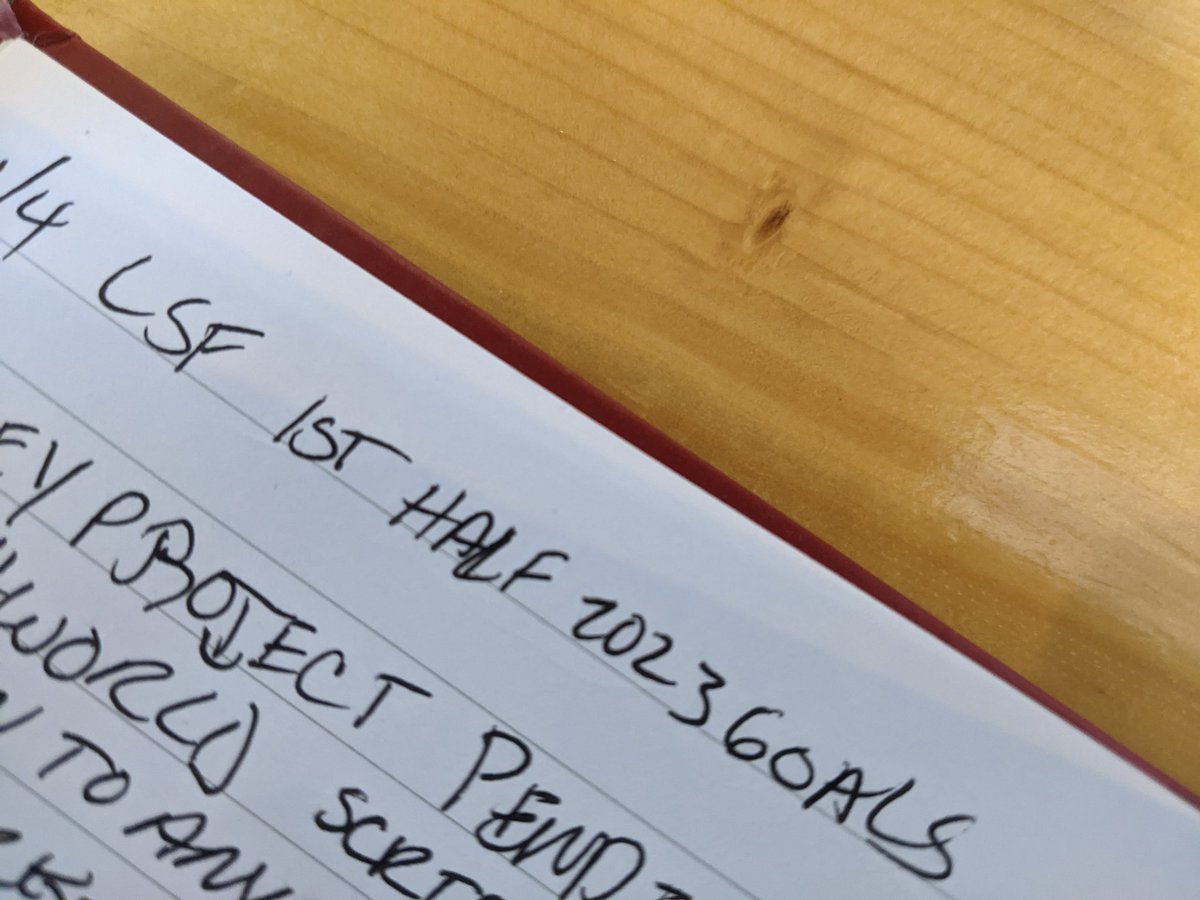 /4 LSF 1ST HALF 2023 GOALS
EY PROJECT PEND
HWORLD SCRI
N TO ANY